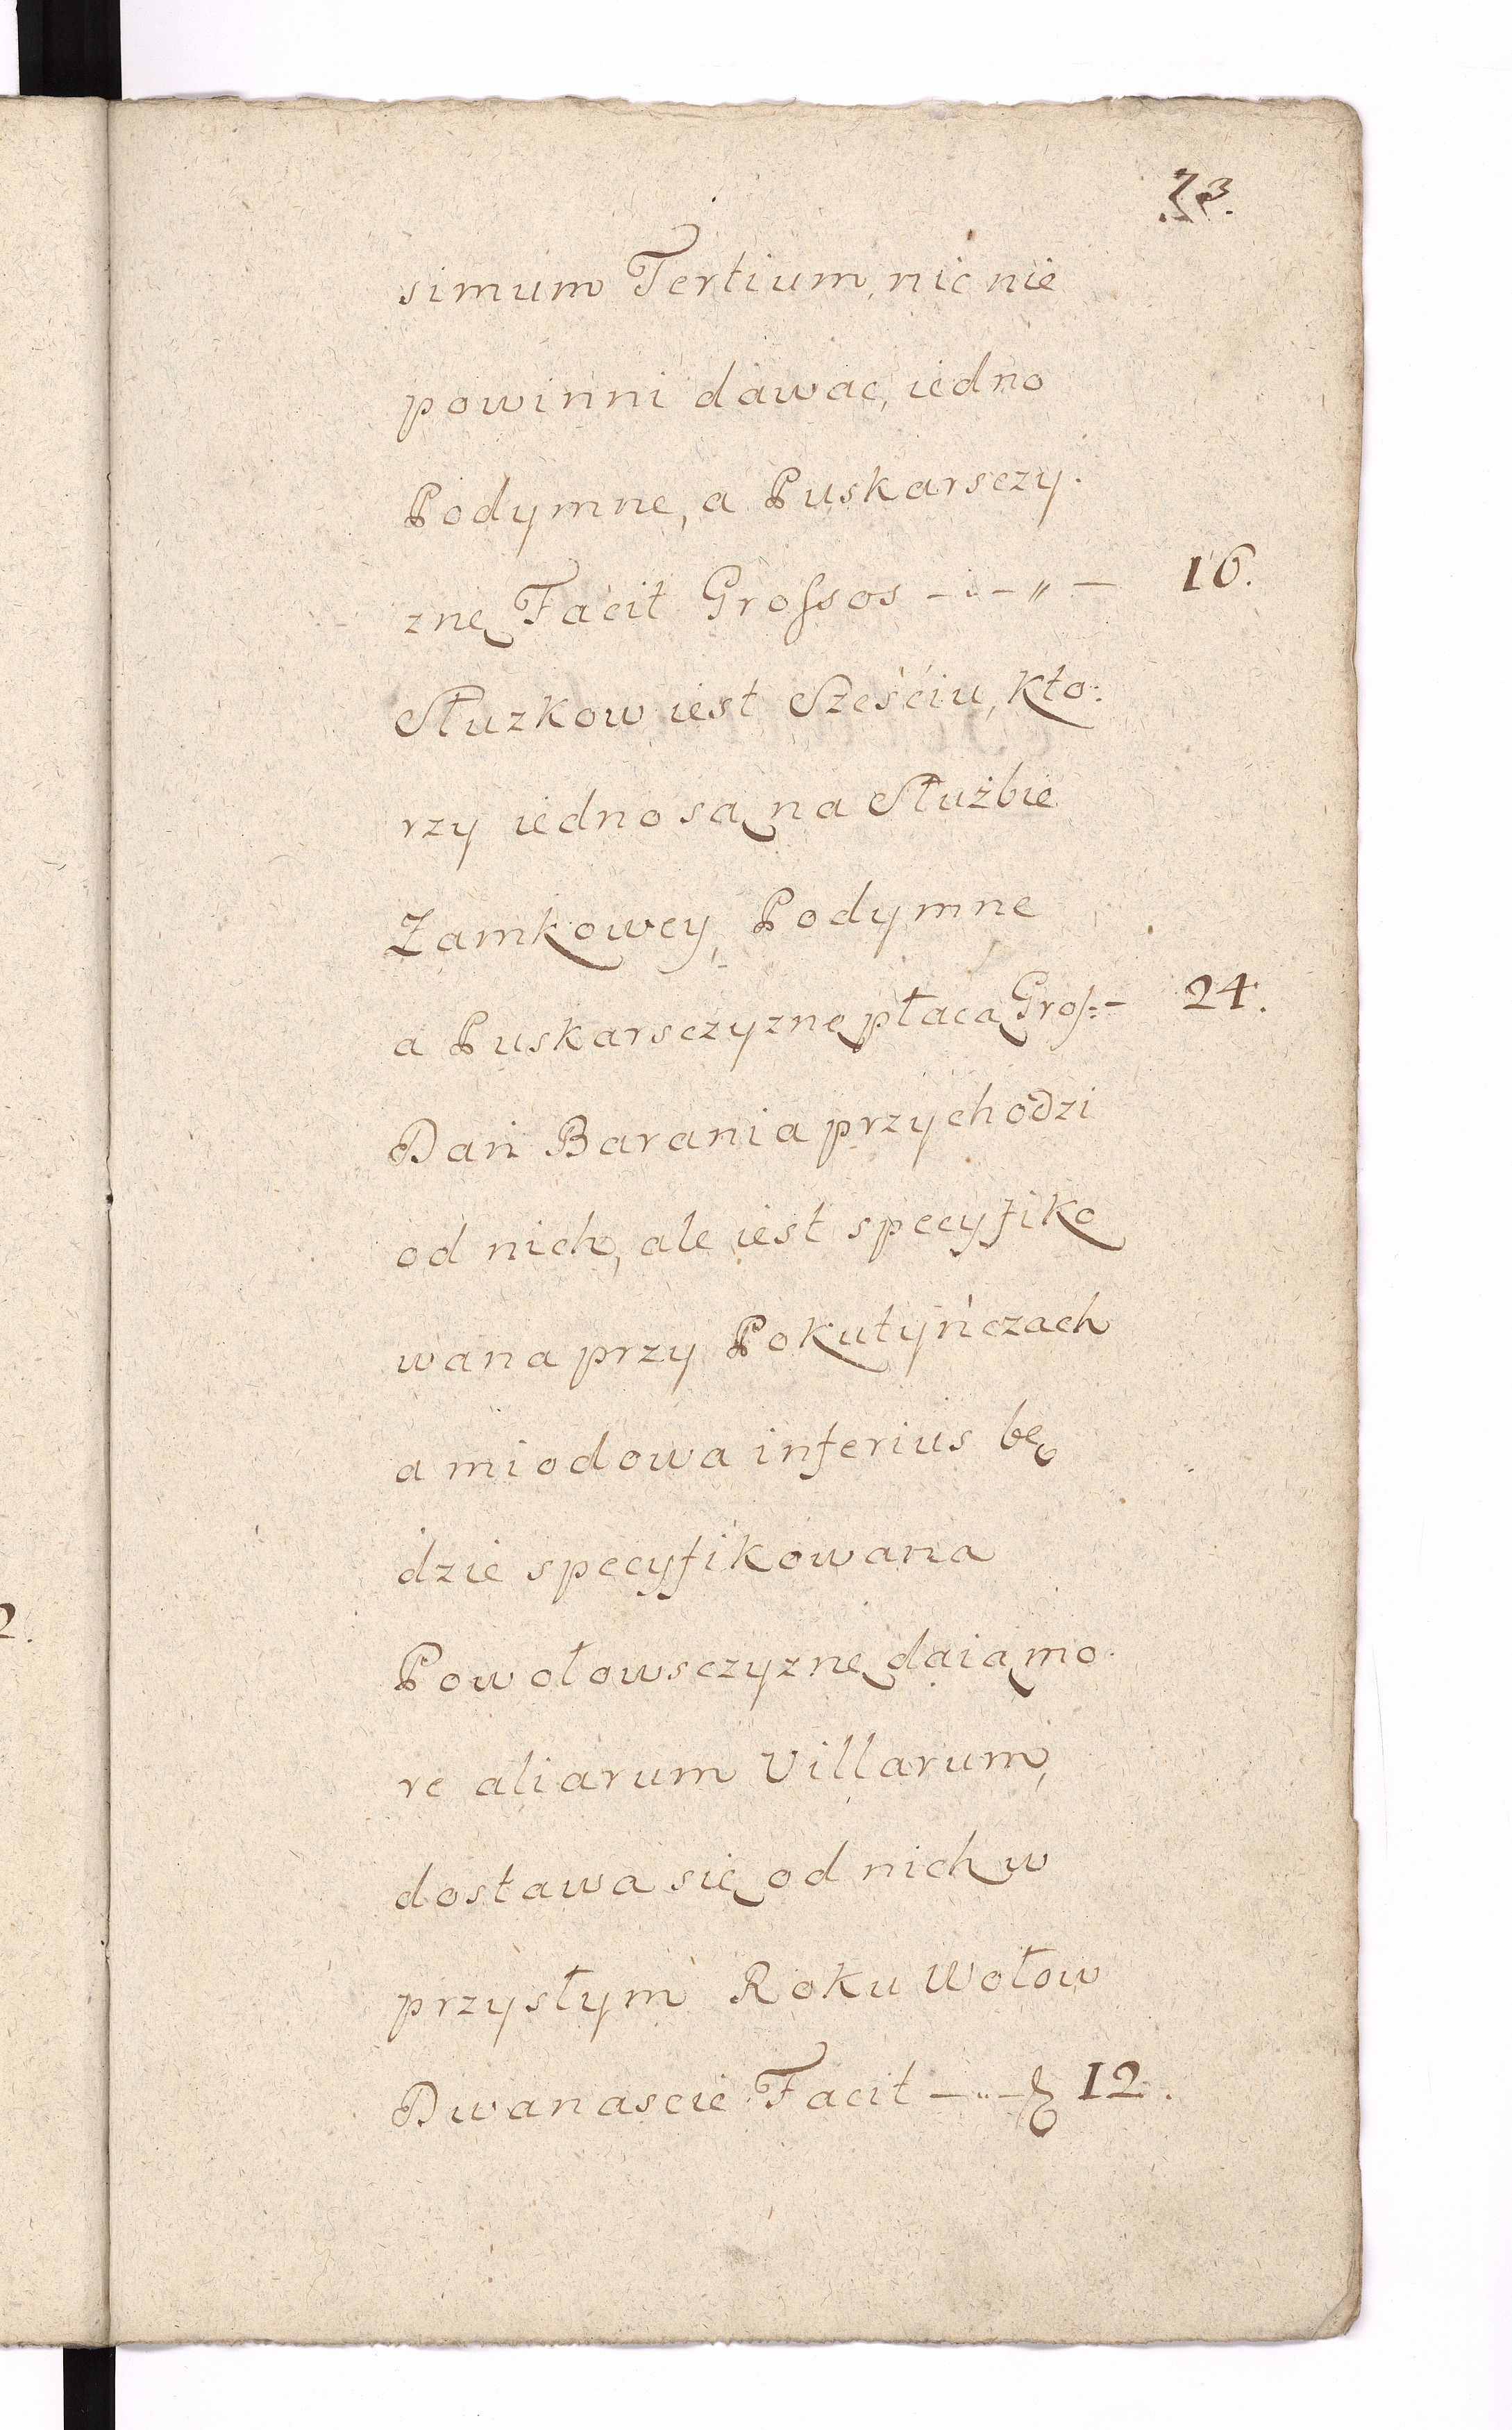 simum Tertium, nic nie
powinni dawac, iedno
Podymne, a Puskarsczy.
znę Facit Grossos — . — „ — 16.
Słuzkow iest Sześciu, kto:
rzy iedno są na Służbie
Zamkowey, Podymne
a Puskarsczyznę płacą Gros: — 24.
Dań Barania przychodzi
od nich, ale iest specyfiko
wana przy Pokutyńczach
a miodowa inferius bę
dzie specyfikowana
Powołowsczyznę daią mo.
re aliarum Villarum,
dostawa się od nich w
przysłym Roku Wołow
Dwanascie Facit — „ — 12.
2.